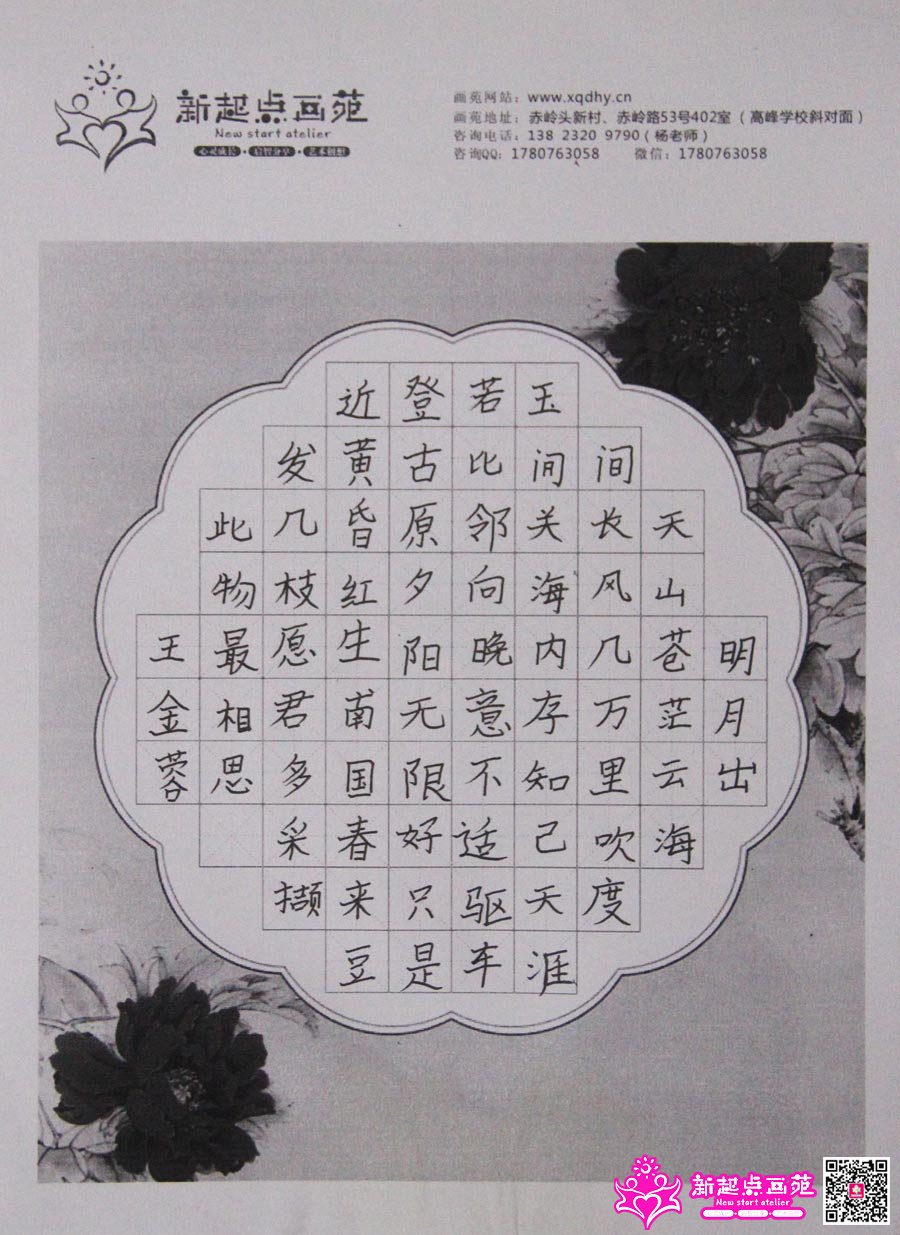 新起点画苑
New start atelier
心灵成长·启智分享·艺术创想
画苑网站：www.xqdhy.cn
画苑地址：赤岭头新村、赤岭路53号402室（高峰学校斜对面）
咨询电话：138 2320 9790（杨老师）
咨询QQ：1780763058 微信：1780763058
明月出
天山苍茫云海
间长风几万里吹度
玉间关海内存知己天涯
若比邻向晚意不适驱车
登古原夕阳无限好只是
近黄昏红生南国春来豆
发几枝愿君多采撷
此物最相思
王金蓉
新起点画苑
New start atelier